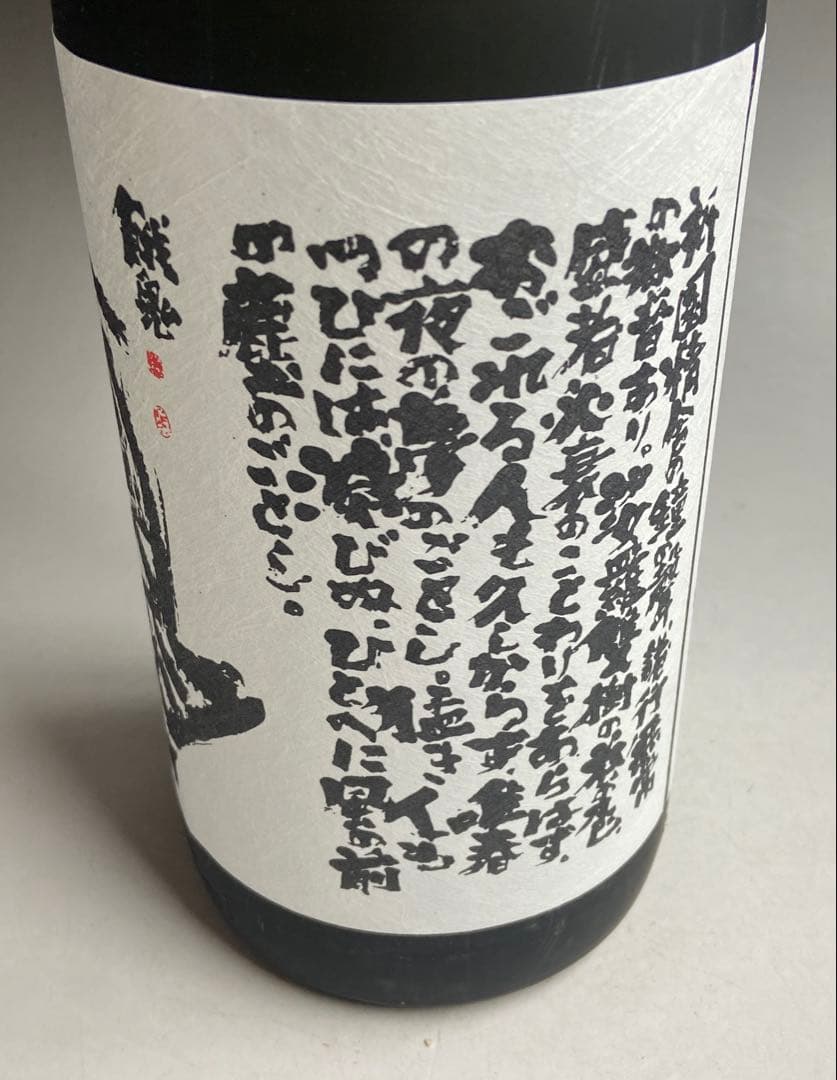 祇園精舎の鐘の聲、諸行無常
の響あり。娑羅雙樹の花の色、
盛者必衰のことわりをあらはす。
おごれる人も久しからず、唯春
の夜の夢のごとし。猛き人の
つひには滅びぬ、ひとへに風の前
の塵のごとし。